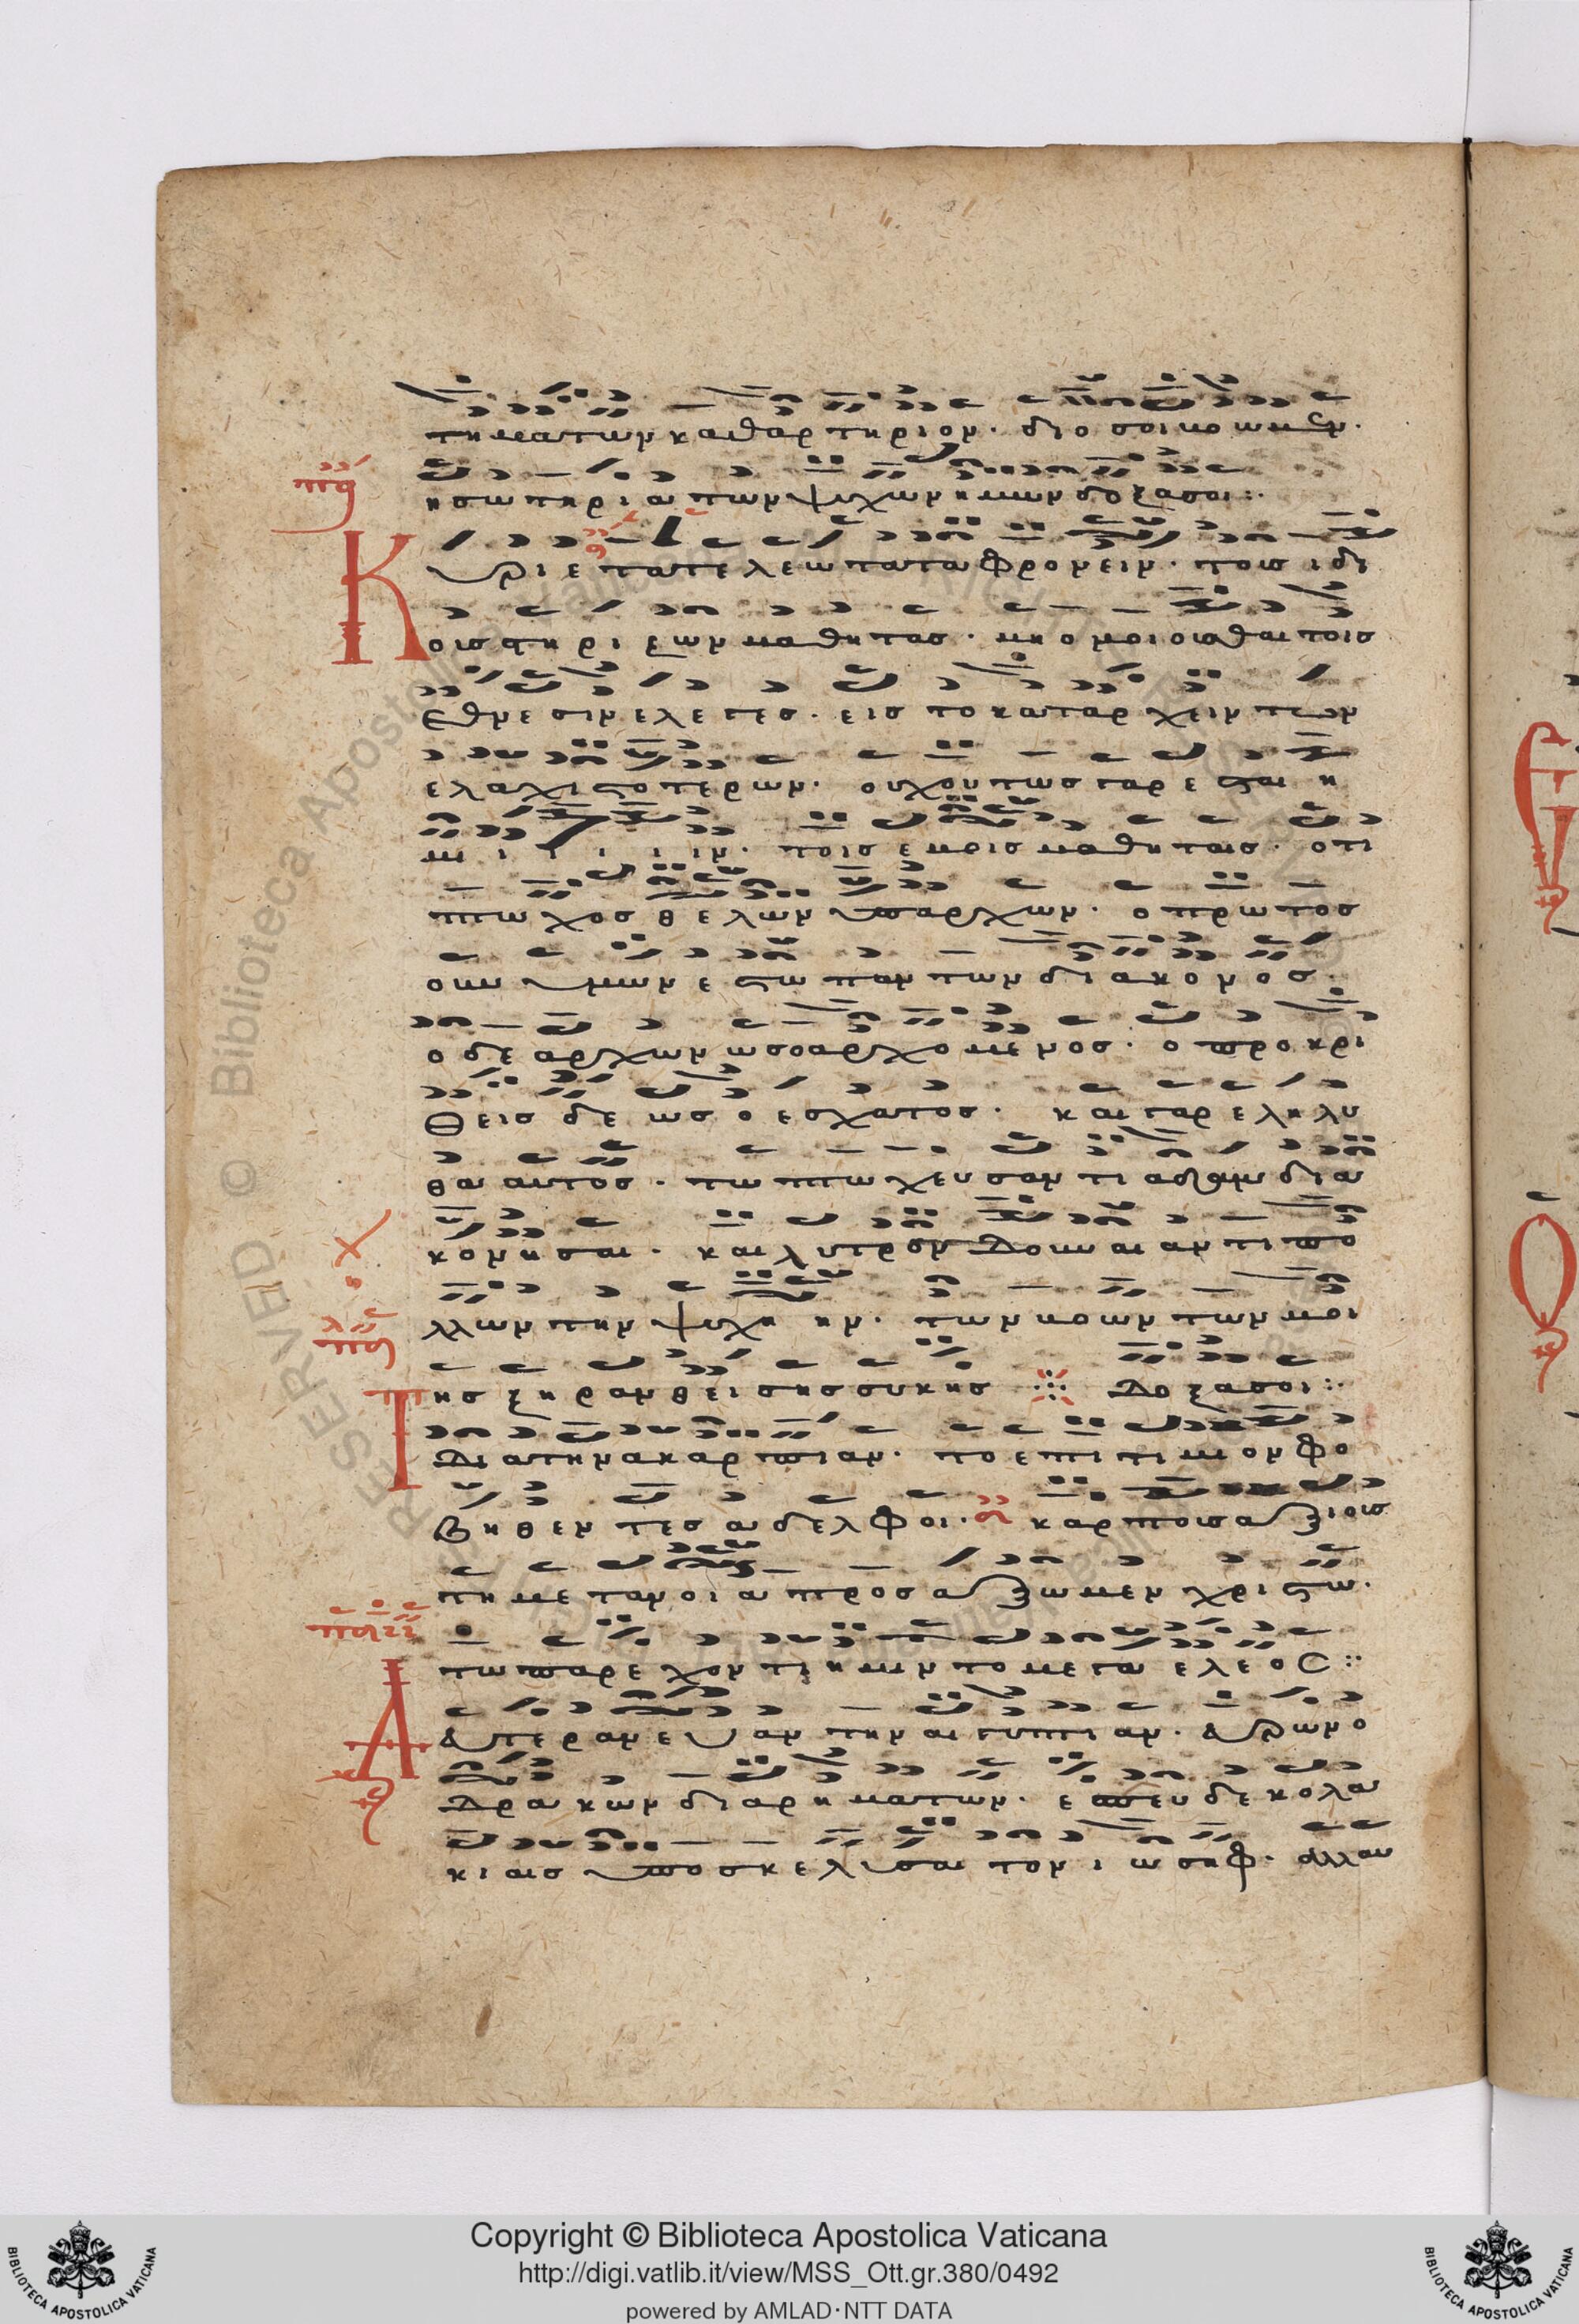 τηματων καθαρτηριον· διο σοι βοωμεν·
η σωτηρια των ψυχων ημων δοξα σοι:·
Κυριε τα τελεωτατα φρονειν· τους ιδι
ους στηριζων μαθητας· μη ομοιουσθαι τοις
εθνεσιν ελεγες· εις το καταρχειν των
ελαχιστοτερων· ουχ ουτως γαρ εσται η
μι ι ι ι ι ιν· τοις εμοις μαθηταις· οτι
πτωχος θελων υπαρχων· ο πρωτος
ουν υμων εστω παντων διακονος·
ο δε αρχων ως ο αρχομενος· ο προκρι
θεις δε ως ο εσχατος· και γαρ εληλυ
θα αυτος· τω πτωχευσαντι αδαμ δια
κονησαι· και λυτρον δουναι αντι πο
λλων την ψυχη ην· των βοων των μοι
Της ξηρανθεισης συκης δοξα σοι:·
δια την ακαρπιαν· το επιτιμιον φο
βηθεντες αδελφοι· καρπους αξιους
τη μετανοια προσαξωμεν χριστω·
τω παρεχοντι ημιν το μεγα ελεος:·
Δευτεραν ευαν την αιγυπτιαν· ευρων ο
δρακων δια ρηματων· εσπευδε κολα
κιαις υποσκελισαι τον ιωσηφ· αλλ αυ
Copyright © Biblioteca Apostolica Vaticana
http://digi.vatlib.it/view/MSS_Ott.gr.380/0492
powered by AMLAD·NTT DATA